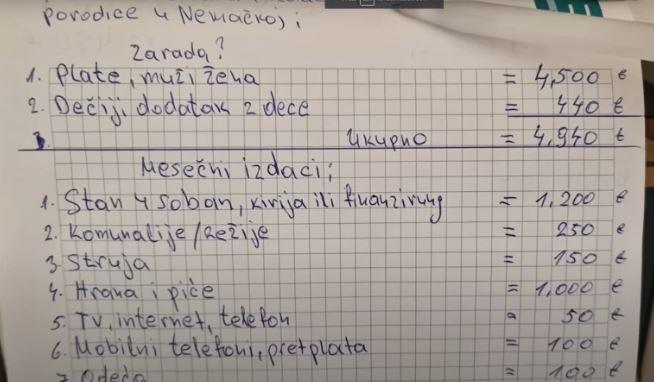 porodice u Nemačkoj;
Zarada?
1. Plate, muž i žena = 4,500 €
2. Dečiji dodatak 2 dece = 440 €
3. Ukupno = 4,940 €
Mesečni izdaci;
1. Stan 4 soban, kirija ili finanzirung = 1,200 €
2. Komunalije/Režije = 250 €
3. Struja = 150 €
4. Hrana i piće = 1,000 €
5. TV, internet, telefon = 50 €
6. Mobilni telefoni, pretplata = 100 €
7. Odeća = 100 €